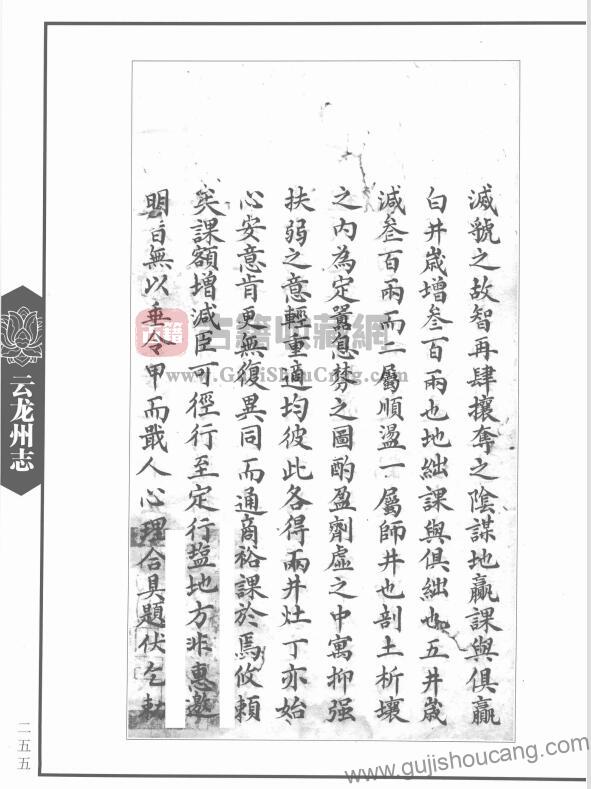 滅虢之故智再肆攘奪之陰謀地贏課與俱贏
白井歲增叄百兩也地絀課與俱絀也五井歲
減叄百兩而一屬順盪一屬師井也剖土析壤
之內為定囂息棼之圖酌盈劑虛之中寓抑强
扶弱之意輕重適均彼此各得兩井灶丁亦始
心安意肯更無復異同而通商裕課於焉攸賴
矣課額增減臣可徑行至定行盐地方非惠邀
明旨無以垂令甲而戢人心理合具題伏乞敕
云龙州志
二五五
古籍收藏網
www.GuJiShouCang.com
古籍
www.gujishoucang.com